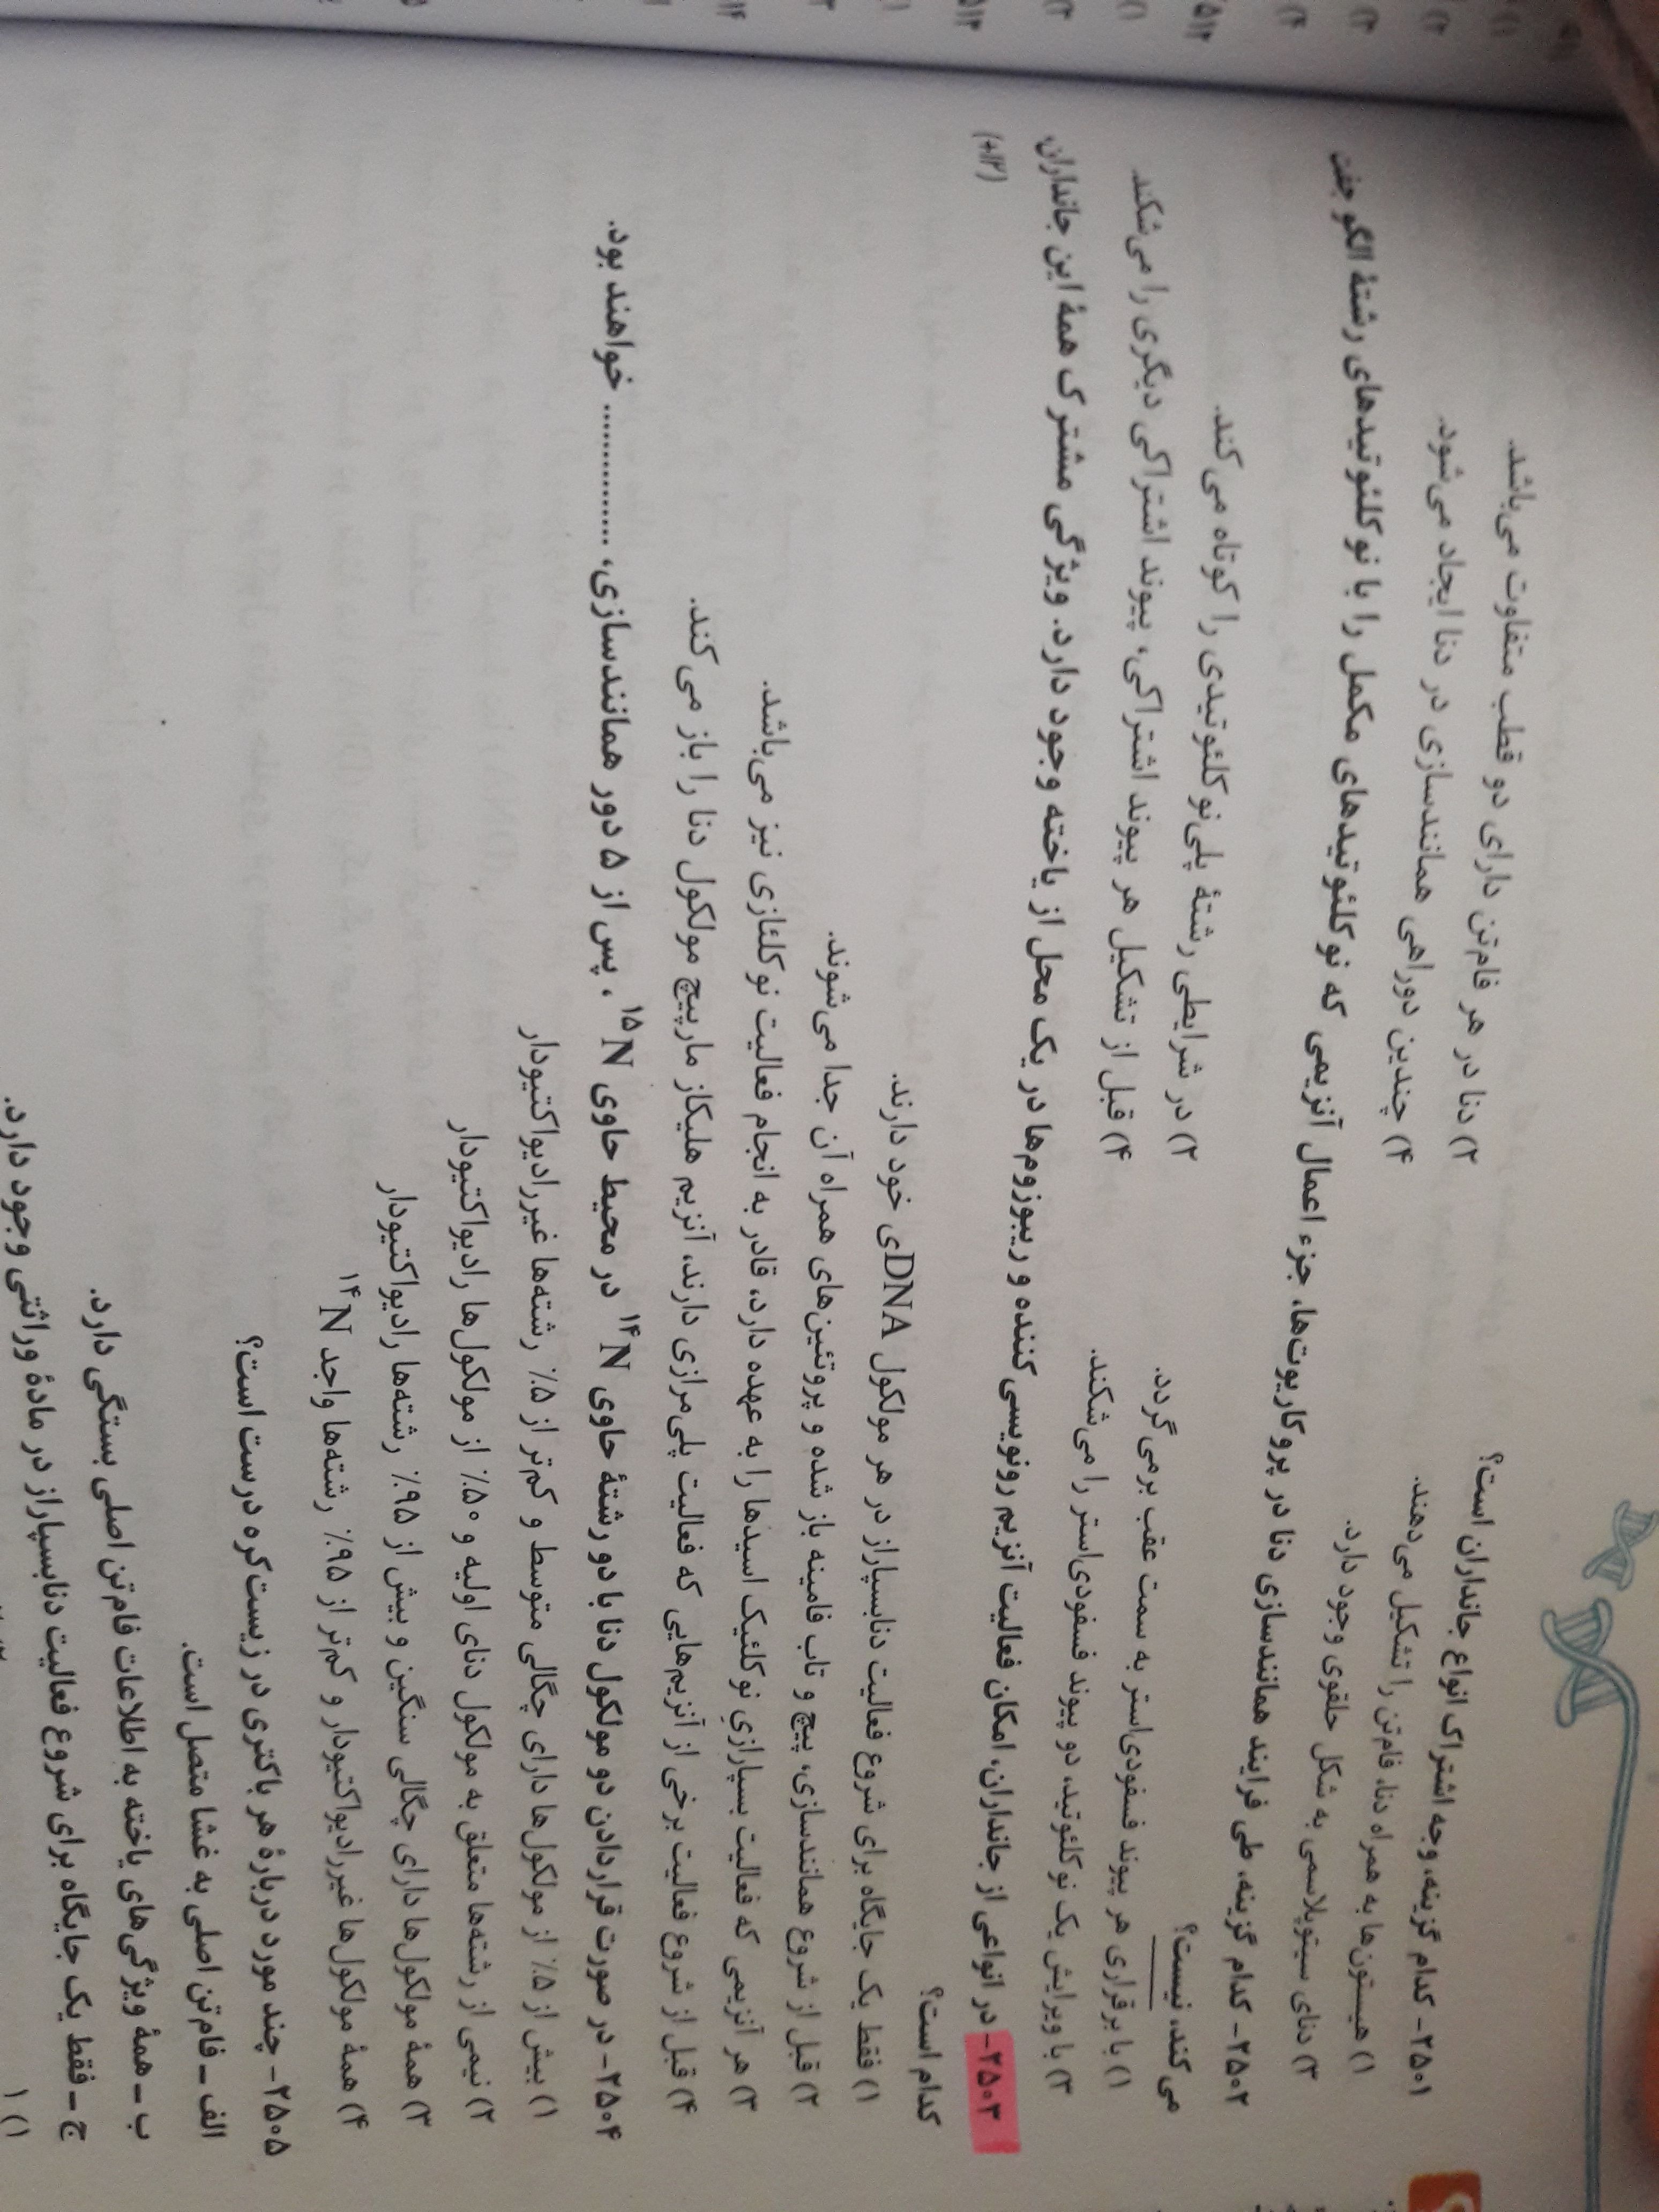 ۲۵۰۱- کدام گزینه، وجه اشتراک انواع جانداران است؟
۱) هیستون‌ها به همراه دنا، فام‌تن را تشکیل می‌دهند. ۲) دنا در هر فام‌تن دارای دو قطب متفاوت می‌باشد.
۳) دنای سیتوپلاسمی به شکل حلقوی وجود دارد. ۴) چندین دوراهی همانندسازی در دنا ایجاد می‌شود.
۲۵۰۲- کدام گزینه، طی فرایند همانندسازی دنا در پروکاریوت‌ها، جزء اعمال آنزیمی که نوکلئوتیدهای مکمل را با نوکلئوتیدهای رشتهٔ الگو جفت
می‌کند، نیست؟
۱) با برقراری هر پیوند فسفودی‌استر به سمت عقب برمی‌گردد. ۲) در شرایطی رشتهٔ پلی‌نوکلئوتیدی را کوتاه می‌کند.
۳) با ویرایش یک نوکلئوتید، دو پیوند فسفودی‌استر را می‌شکند. ۴) قبل از تشکیل هر پیوند اشتراکی، پیوند اشتراکی دیگری را می‌شکند.
۲۵۰۳- در انواعی از جانداران، امکان فعالیت آنزیم رونویسی‌کننده و ریبوزوم‌ها در یک محل از یاخته وجود دارد. ویژگی مشترک همهٔ این جانداران،
کدام است؟
۱) فقط یک جایگاه برای شروع فعالیت دنابسپاراز در هر مولکول DNAی خود دارند.
۲) قبل از شروع همانندسازی، پیچ و تاب فامینه باز شده و پروتئین‌های همراه آن جدا می‌شوند.
۳) هر آنزیمی که فعالیت بسپارازیِ نوکلئیک اسیدها را به عهده دارد، قادر به انجام فعالیت نوکلئازی نیز می‌باشد.
۴) قبل از شروع فعالیت برخی از آنزیم‌هایی که فعالیت پلی‌مرازی دارند، آنزیم هلیکاز مارپیچ مولکول دنا را باز می‌کند.
۲۵۰۴- در صورت قراردادن دو مولکول دنا با دو رشتهٔ حاوی ¹⁴N در محیط حاوی ¹⁵N، پس از ۵ دور همانندسازی، ............ خواهند بود.
۱) بیش از ۵٪ از مولکول‌ها دارای چگالی متوسط و کم‌تر از ۵٪ رشته‌ها غیررادیواکتیودار
۲) نیمی از رشته‌ها متعلق به مولکول دنای اولیه و ۵۰٪ از مولکول‌ها رادیواکتیودار
۳) همهٔ مولکول‌ها دارای چگالی سنگین و بیش از ۹۵٪ رشته‌ها رادیواکتیودار
۴) همهٔ مولکول‌ها غیررادیواکتیودار و کم‌تر از ۹۵٪ رشته‌ها واجد ¹⁴N
۲۵۰۵- چند مورد دربارهٔ هر باکتری در زیست‌کره درست است؟
الف ـ فام‌تن اصلی به غشا متصل است.
ب ـ همهٔ ویژگی‌های یاخته به اطلاعات فام‌تن اصلی بستگی دارد.
ج ـ فقط یک جایگاه برای شروع فعالیت دنابسپاراز در مادهٔ وراثتی وجود دارد.
۱) ۱